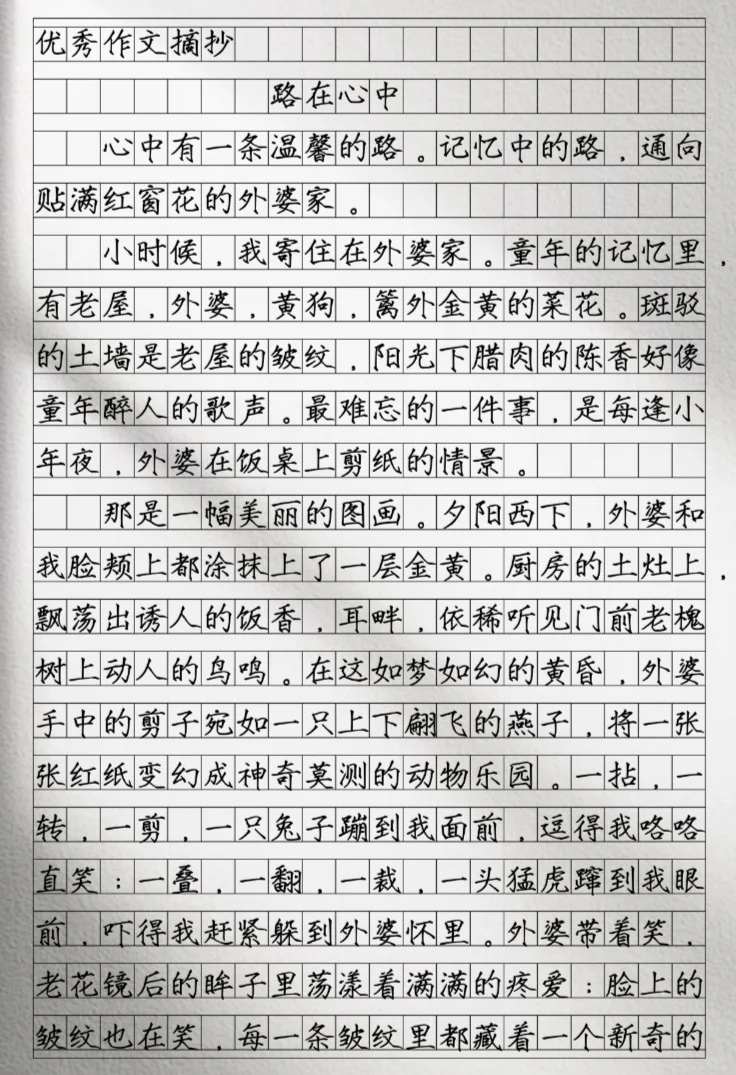 优秀作文摘抄
路在心中
心中有一条温馨的路。记忆中的路，通向
贴满红窗花的外婆家。
小时候，我寄住在外婆家。童年的记忆里，
有老屋，外婆，黄狗，篱外金黄的菜花。斑驳
的土墙是老屋的皱纹，阳光下腊肉的陈香好像
童年醉人的歌声。最难忘的一件事，是每逢小
年夜，外婆在饭桌上剪纸的情景。
那是一幅美丽的图画。夕阳西下，外婆和
我脸颊上都涂抹上了一层金黄。厨房的土灶上，
飘荡出诱人的饭香，耳畔，依稀听见门前老槐
树上动人的鸟鸣。在这如梦如幻的黄昏，外婆
手中的剪子宛如一只上下翩飞的燕子，将一张
张红纸变幻成神奇莫测的动物乐园。一拈，一
转，一剪，一只兔子蹦到我面前，逗得我咯咯
直笑：一叠，一翻，一裁，一头猛虎蹿到我眼
前，吓得我赶紧躲到外婆怀里。外婆带着笑，
老花镜后的眸子里荡漾着满满的疼爱：脸上的
皱纹也在笑，每一条皱纹里都藏着一个新奇的